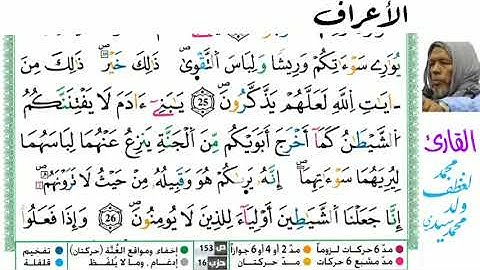 الأعراف
يُوَٰرِے سَوْءَٰتِكُمْ وَرِيشًا وَلِبَاسَ اَ۬لتَّقْو۪يٰۖ ذَٰلِكَ خَيْرٞۖ ذَٰلِكَ مِنَ
ءَايَٰتِ اِ۬للَّهِ لَعَلَّهُمْ يَذَّكَّرُونَۖ 25 يَٰبَنِےٓ ءَادَمَ لَا يَفْتِنَنَّكُمُ
اُ۬لشَّيْطَٰنُ كَمَآ أَخْرَجَ أَبَوَيْكُم مِّنَ اَ۬لْجَنَّةِ يَنزِعُ عَنْهُمَا لِبَاسَهُمَا
لِيُرِيَهُمَا سَوْءَٰتِهِمَآۖ إِنَّهُۥ يَر۪يٰكُمْ هُوَ وَقَبِيلُهُۥ مِنْ حَيْثُ لَا تَرَوْنَهُمُۥٓۖ
إِنَّا جَعَلْنَا اَ۬لشَّيَٰطِينَ أَوْلِيَآءَ لِلذِينَ لَا يُومِنُونَۖ 26 وَإِذَا فَعَلُواْ
القارئ
محمد
لغظف
ولد
محمد سيدي
مدّ 6 حركات لزوماً مدّ 2 أو 4 أو 6 جوازاً ص 153 إخفاء ومواقع الغُنَّة (حركتان) تفخيم
مدّ مشبع 6 حركات مدّ حركتان حزب 16 إدغام، وما لا يُلفظ قلقلة